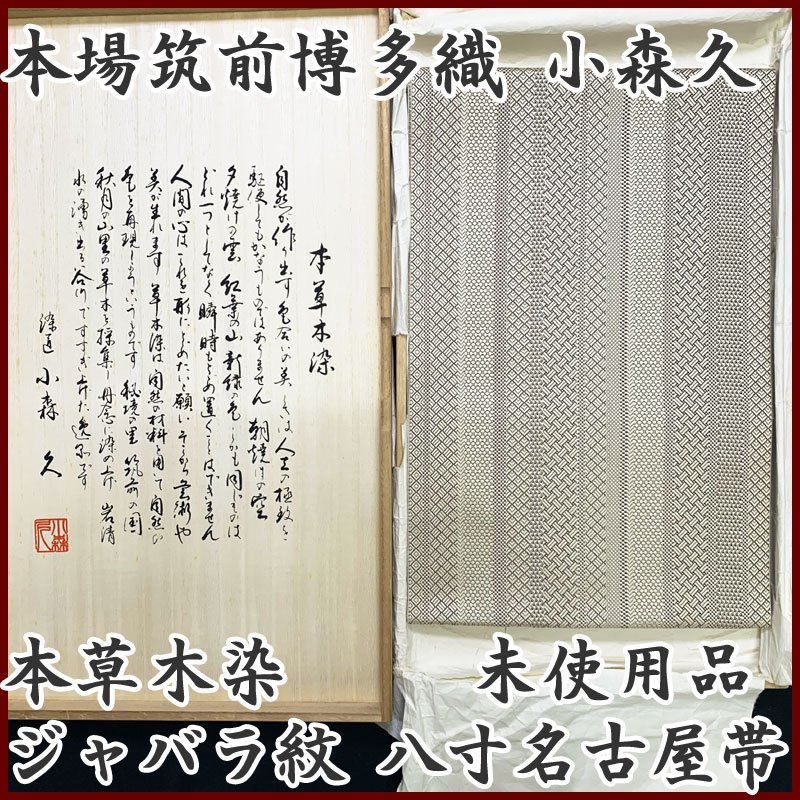 本場筑前博多織 小森久
本草木染
自然が作り出す色合いの美しさは人工の極致を
駆使してもかなうものではありません 朝焼けの空
夕焼けの雲 紅葉の山 新緑の色 しかも同じものは
どれ一つとしてなく 瞬時もとめ置くことはできません
人間の心はこれを形にとどめたいと願い そこから芸術や
美が生れます 草木染は自然の材料を用いて自然の
色を再現しようというものです 秘境の里 筑前の国
秋月の山里の草木を採集し丹念に染め上げ 岩清
水の湧き出る谷川ですすぎ上げた逸品です
染匠 小森 久
本草木染 未使用品
ジャバラ紋 八寸名古屋帯